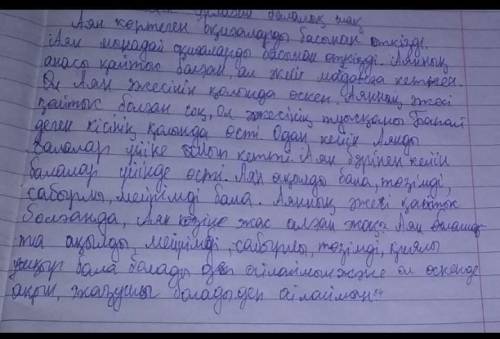 ұрлаған балалық шақ
Аян көптеген оқиғаларды басынан өткізді.
Аян мынадай оқиғаларды басынан өткізді. Аянның
анасы қайтыс болған, ал әкесі майданға кеткен
Ол Аян әжесінің қолында өскен. Аянның әжесі
қайтыс болған соң, ол әжесінің туысқаны
деген кісінің қолында өсті Одан кейін Аянды
балалар үйіне алып кетті Аян бәрінен кейін
балалар үйінде өсті. Аян ақылды бала, төзімді,
сабырлы, мейрімді бала. Аянның әжесі қайтыс
болғанда, Аян көзіне жас алған жоқ. Аян болашақ
та ақылды, мейрімді, сабырлы, төзімді, қиялы
ұшқыр бала болады деп ойлаймын және ол өскенде
ақын, жазушы болады деп ойлаймын